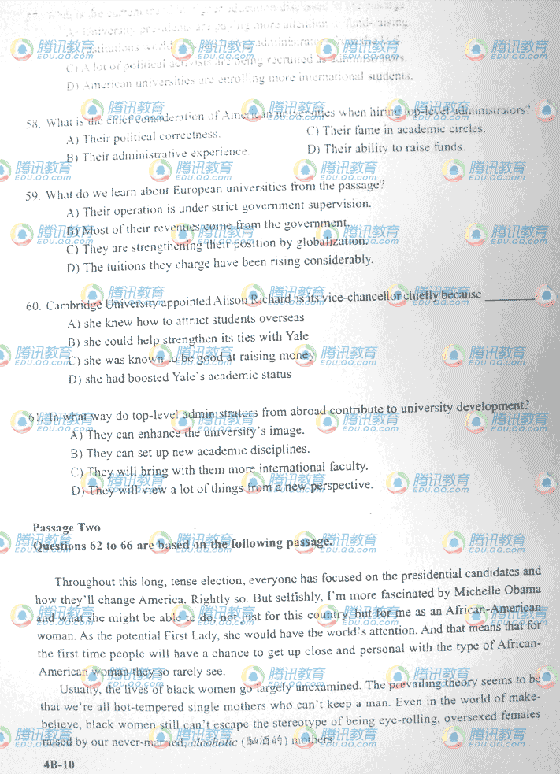 A) University presidents are paying more attention to fund-raising.
D) American universities are enrolling more international students.
58. What is the chief consideration of American universities when hiring top-level administrators?
A) Their political correctness.
C) Their fame in academic circles.
B) Their administrative experience.
D) Their ability to raise funds.
59. What do we learn about European universities from the passage?
A) Their operation is under strict government supervision.
B) Most of their revenues come from the government.
C) They are strengthening their position by globalization.
D) The tuitions they charge have been rising considerably.
60. Cambridge University appointed Alison Richard as its vice-chancellor chiefly because ________.
A) she knew how to attract students overseas
B) she could help strengthen its ties with Yale
C) she was known to be good at raising money
D) she had boosted Yale's academic status
61. In what way do top-level administrators from abroad contribute to university development?
A) They can enhance the university's image.
B) They can set up new academic disciplines.
C) They will bring with them more international faculty.
D) They will view a lot of things from a new perspective.
Passage Two
Questions 62 to 66 are based on the following passage.
Throughout this long, tense election, everyone has focused on the presidential candidates and
how they'll change America. Rightly so. But selfishly, I'm more fascinated by Michelle Obama
and what she might be able to do, not just for this country, but for me as an African-American
woman. As the potential First Lady, she would have the world's attention. And that means that for
the first time people will have a chance to get up close and personal with the type of African-
American woman they so rarely see.
Usually, the lives of black women go largely unexamined. The prevailing theory seems to be
that we're all hot-tempered single mothers who can't keep a man. Even in the world of make-
believe, black women still can't escape the stereotype of being eye-rolling, oversexed females
raised by our never-married, alcoholic (酗酒的) mothers.
4B-10
腾讯教育
EDU.QQ.COM